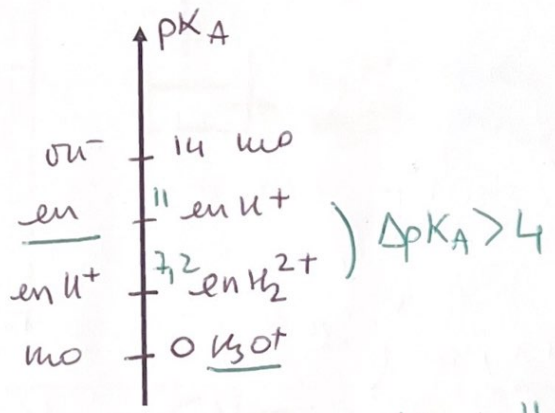 pKA
OH⁻ 14 H₂O
en 11 enH⁺
enH⁺ 7,2 enH₂²⁺ ) ΔpKA > 4
H₂O 0 H₃O⁺